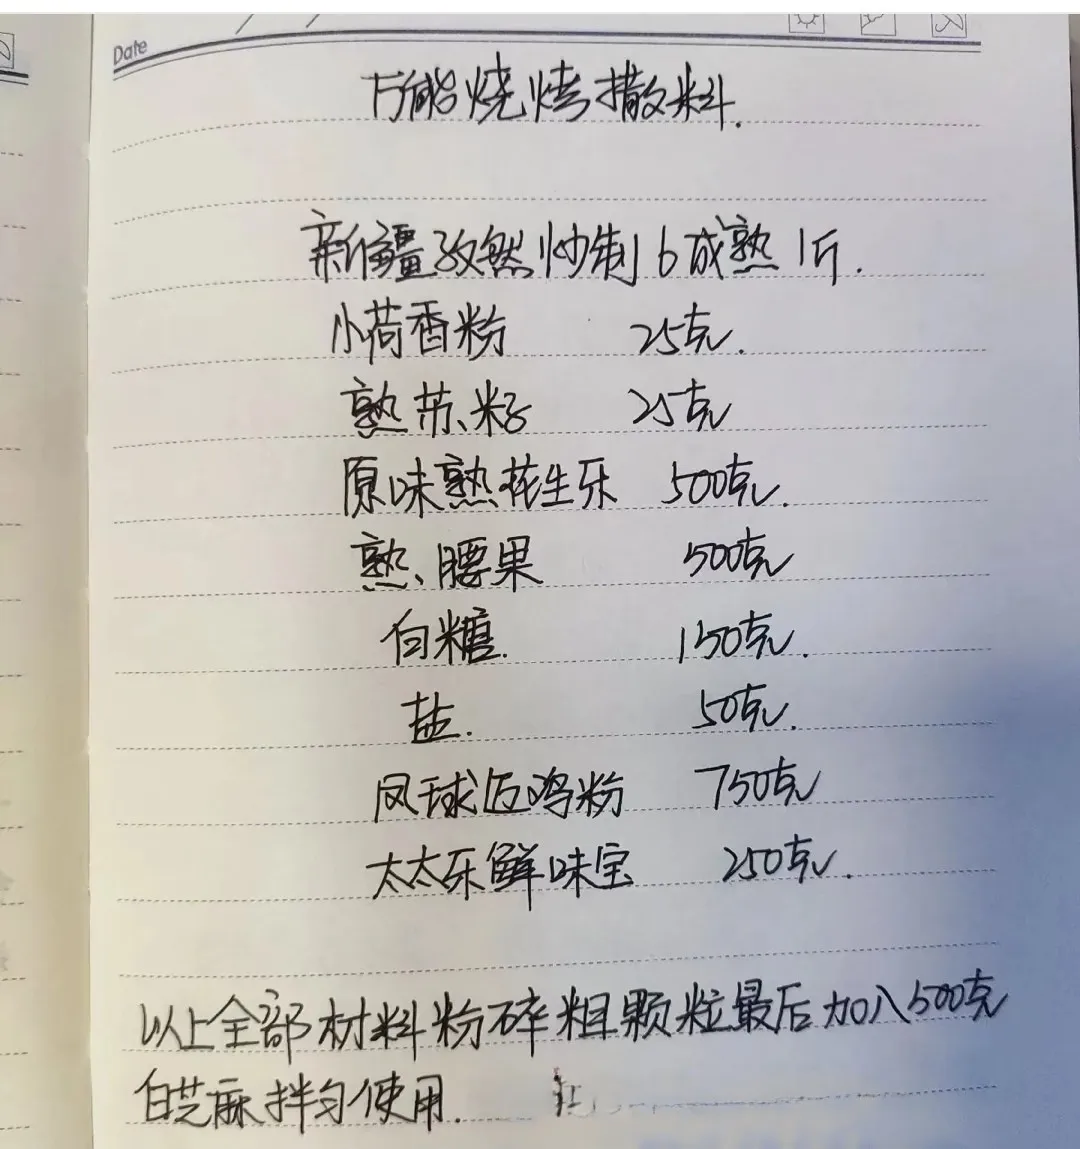 Date
万能烧烤撒料.
新疆孜然炒制6成熟1斤.
小荷香粉 25克.
熟苏籽 25克
原味熟花生乐 500克.
熟腰果 500克
白糖. 150克.
盐. 50克.
凤球匹鸡粉 750克
太太乐鲜味宝 250克.
以上全部材料粉碎粗颗粒最后加入500克
白芝麻拌匀使用.